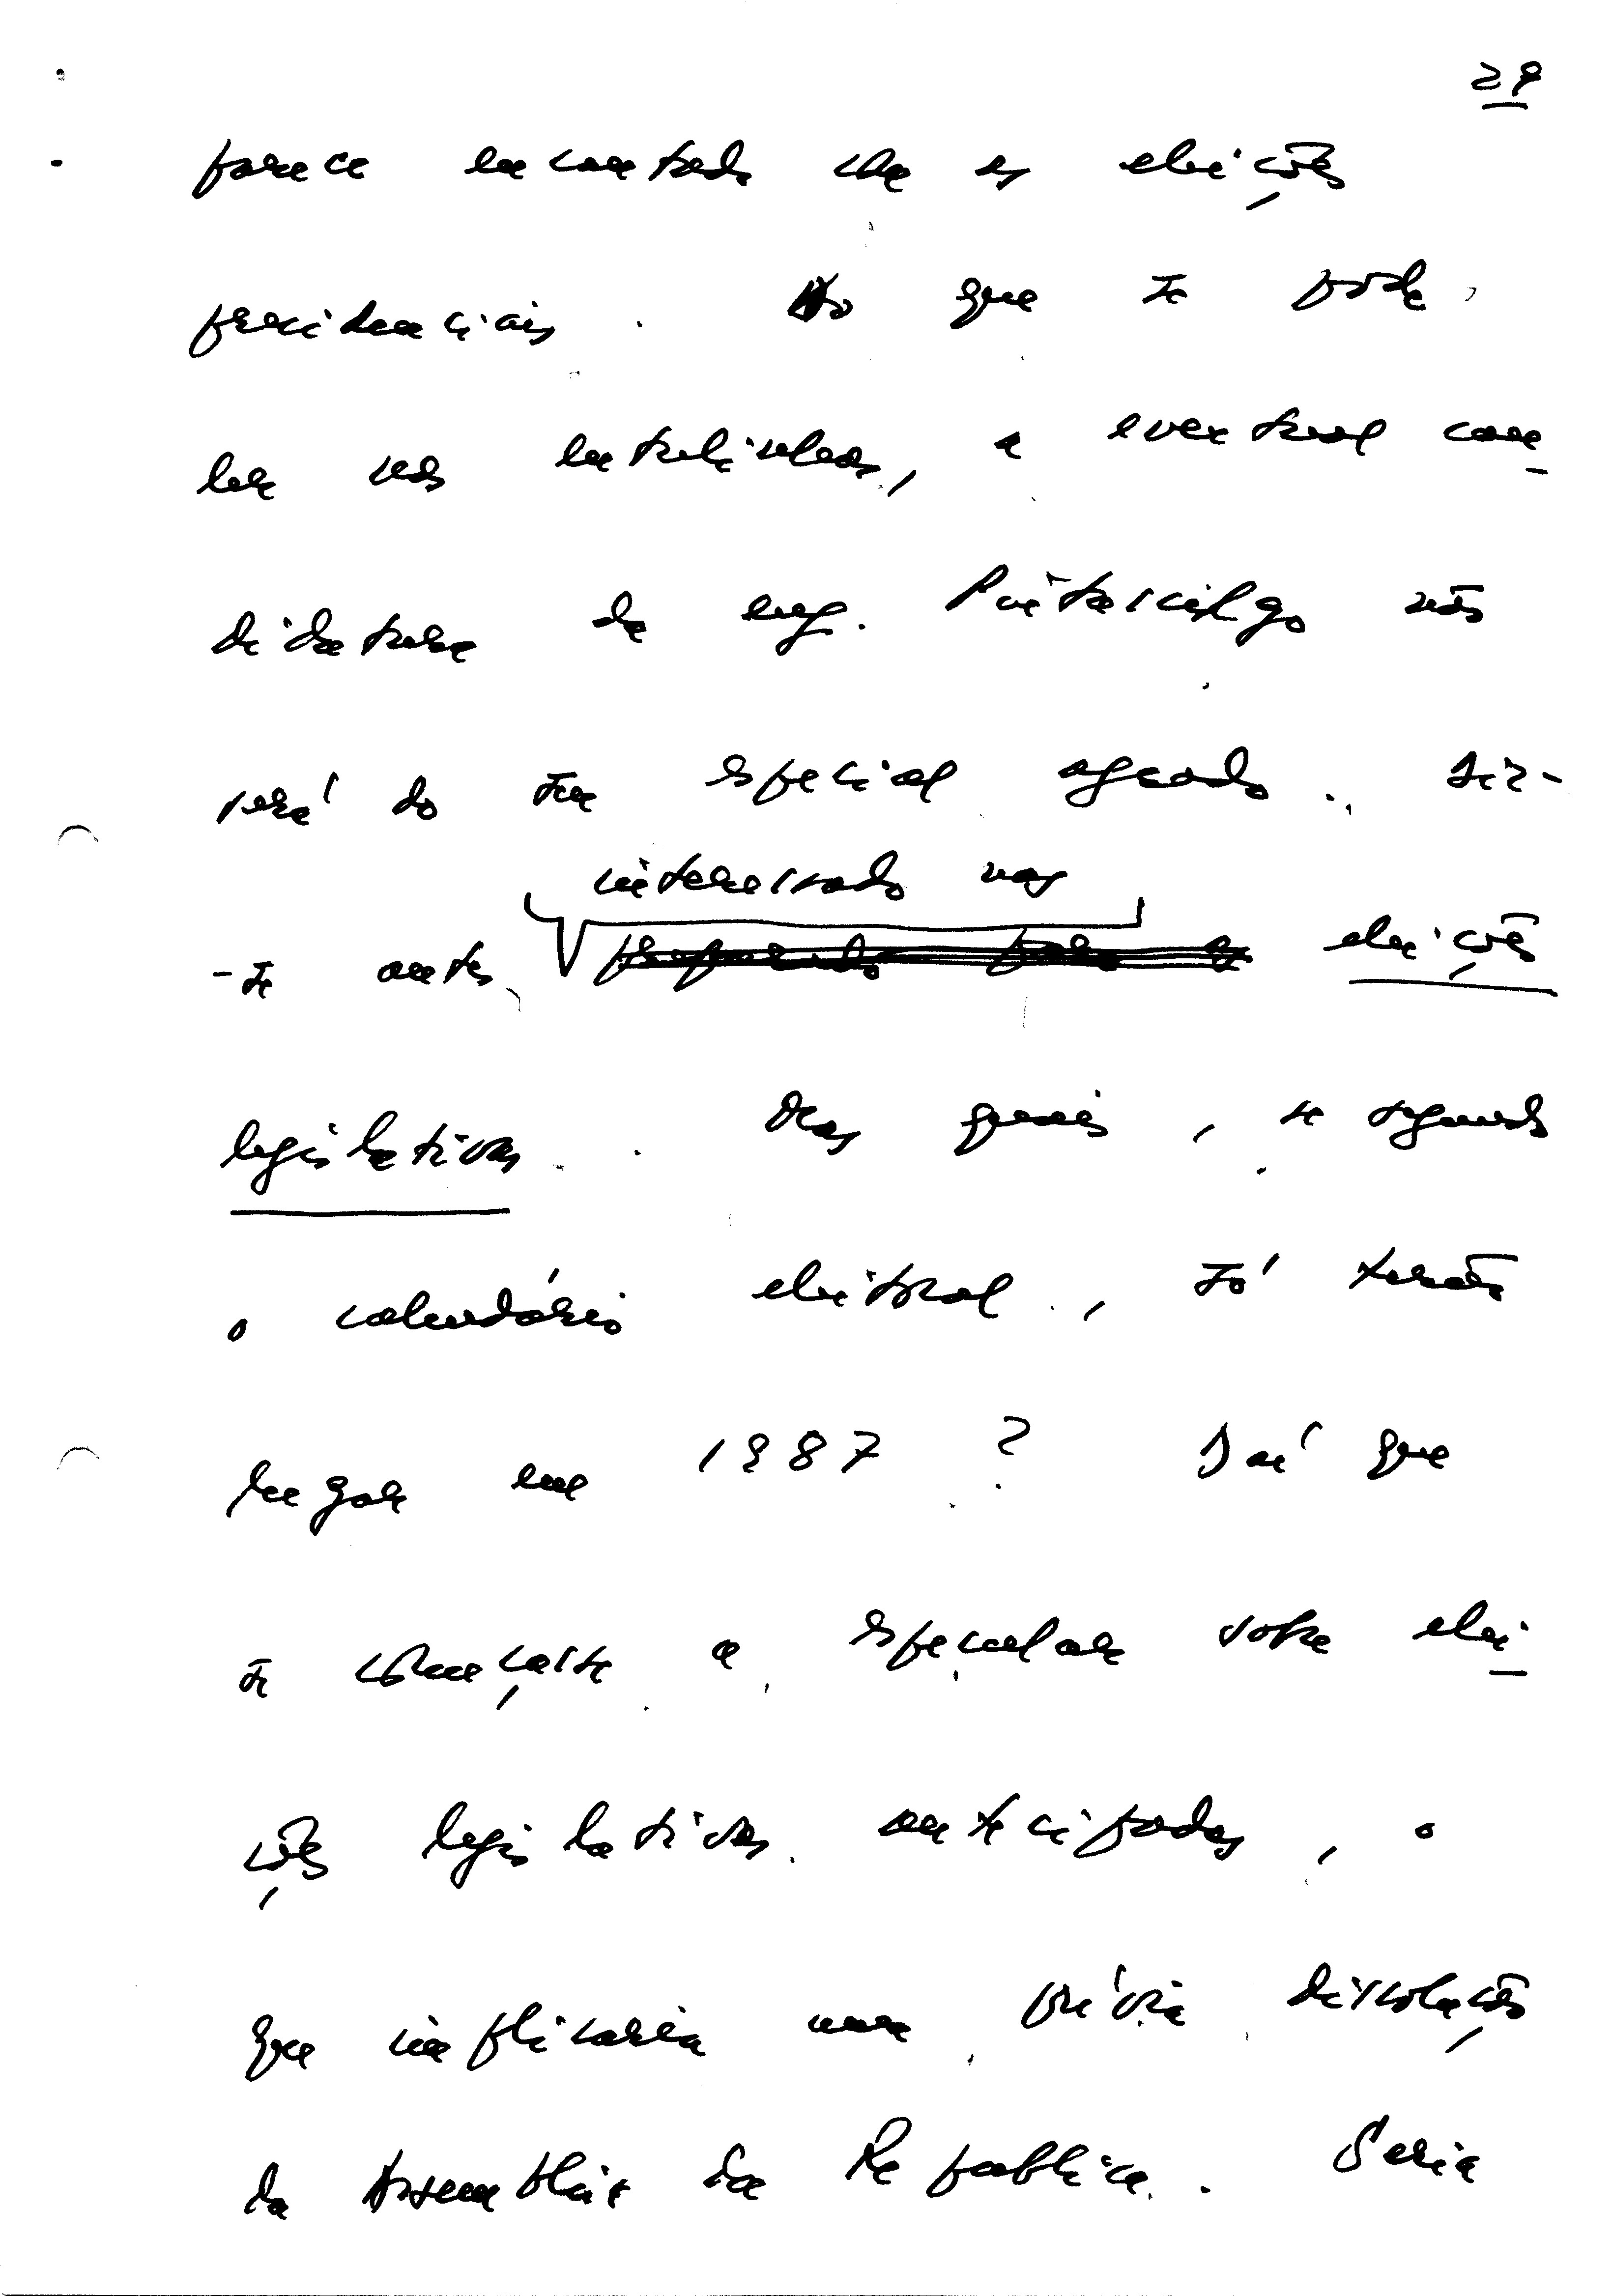 29
parece encantado com as eleições
presidenciais. Ao que se pode
ler nas entrelinhas, a eventual can-
didatura da eng. Pintasilgo não
será do seu especial agrado. Dir-
-se antes interessado nas eleições
legislativas. Das quais, se segundo
o calendário eleitoral, só terão
lugar em 1987? Daí que
se começasse a especular sobre elei-
ções legislativas antecipadas, o
que implicaria uma prévia dissolução
da Assembleia da República. Seria